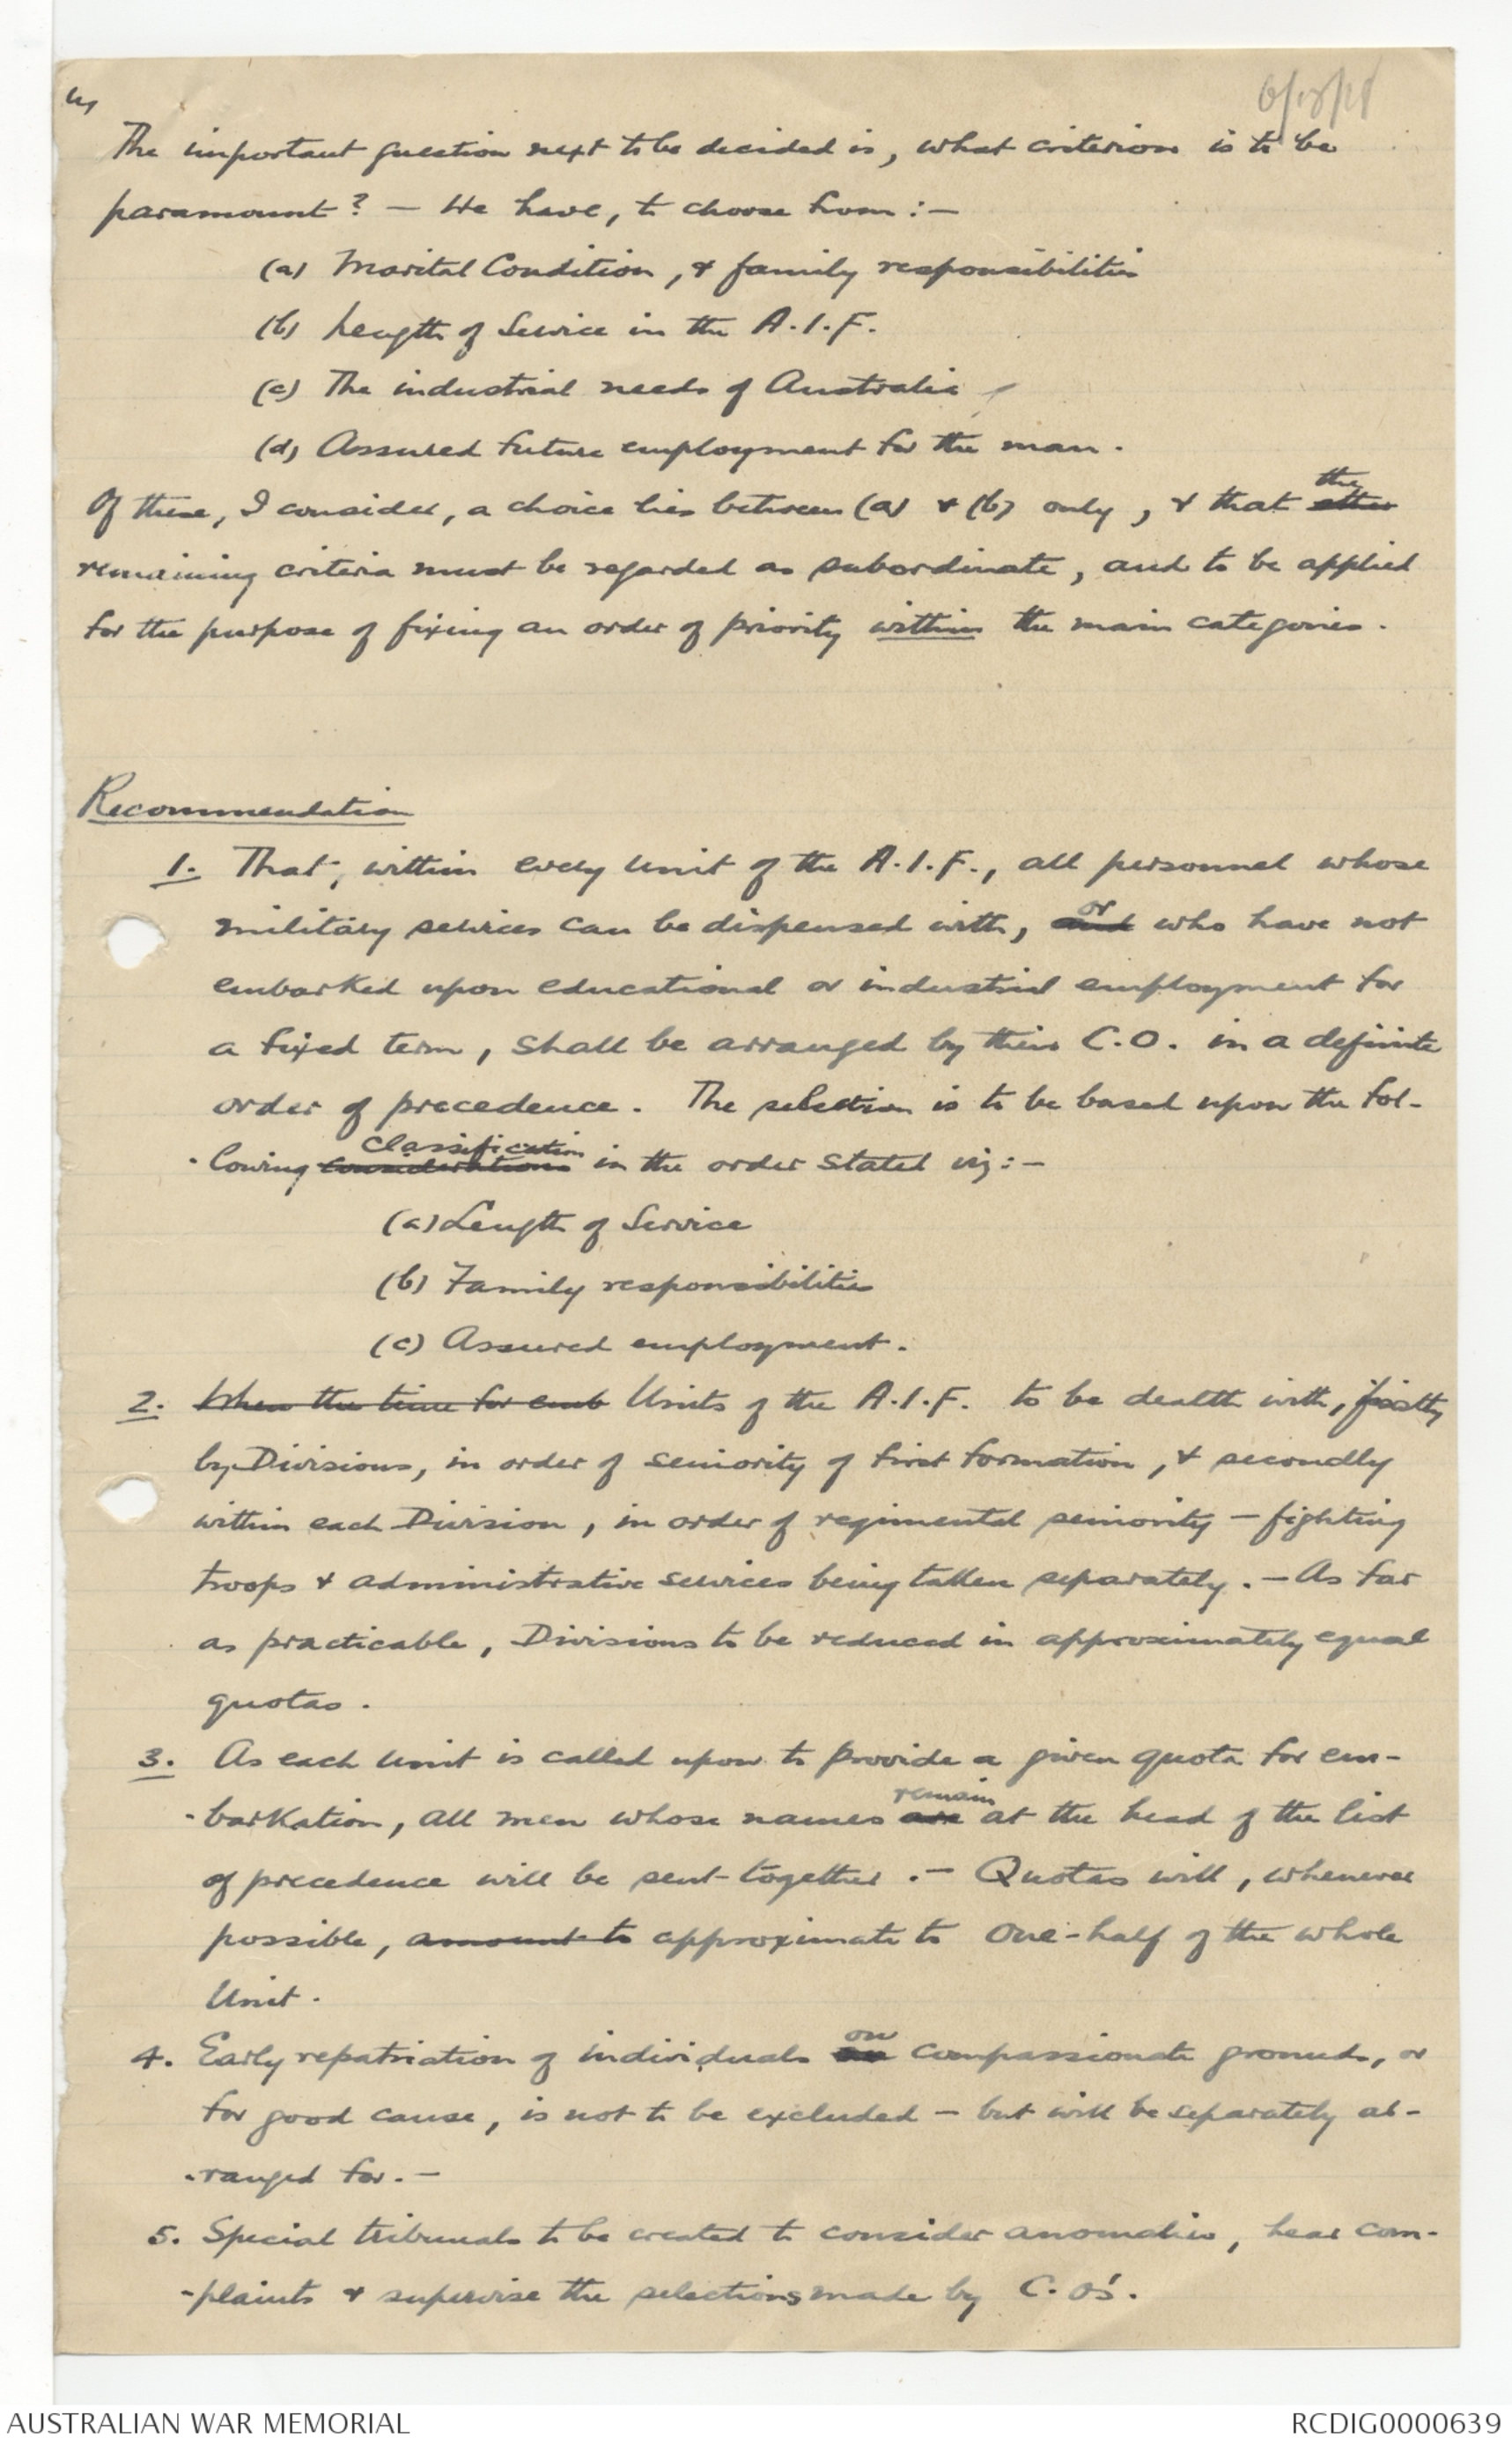 4/
6/12/18
The important question next to be decided is, what criterion is to be
paramount? — We have, to choose from :—
(a) Marital Condition, & family responsibilities
(b) Length of Service in the A.I.F.
(c) The industrial needs of Australia
(d) Assured future employment for the man.
Of these, I consider, a choice lies between (a) & (b) only, & that other the
remaining criteria must be regarded as subordinate, and to be applied
for the purpose of fixing an order of priority within the main categories.
Recommendation
1. That, within every Unit of the A.I.F., all personnel whose
military services can be dispensed with, and or who have not
embarked upon educational or industrial employment for
a fixed term, shall be arranged by their C.O. in a definite
order of precedence. The selection is to be based upon the fol-
-lowing considerations classification in the order stated viz:—
(a) Length of Service
(b) Family responsibilities
(c) Assured employment.
2. When the time for emb Units of the A.I.F. to be dealth with, firstly
by Divisions, in order of seniority of first formation, & secondly
within each Division, in order of regimental seniority — fighting
troops & administrative services being taken separately. — As far
as practicable, Divisions to be reduced in approximately equal
quotas.
3. As each Unit is called upon to provide a given quota for em-
-barkation, all men whose names are remain at the head of the list
of precedence will be sent together. — Quotas will, whenever
possible, amount to approximate to one-half of the whole
Unit.
4. Early repatriation of individuals on compassionate grounds, or
for good cause, is not to be excluded — but will be separately ar-
-ranged for. —
5. Special tribunals to be created to consider anomalies, hear com-
-plaints & supervise the selections made by C.O's.
AUSTRALIAN WAR MEMORIAL
RCDIG0000639